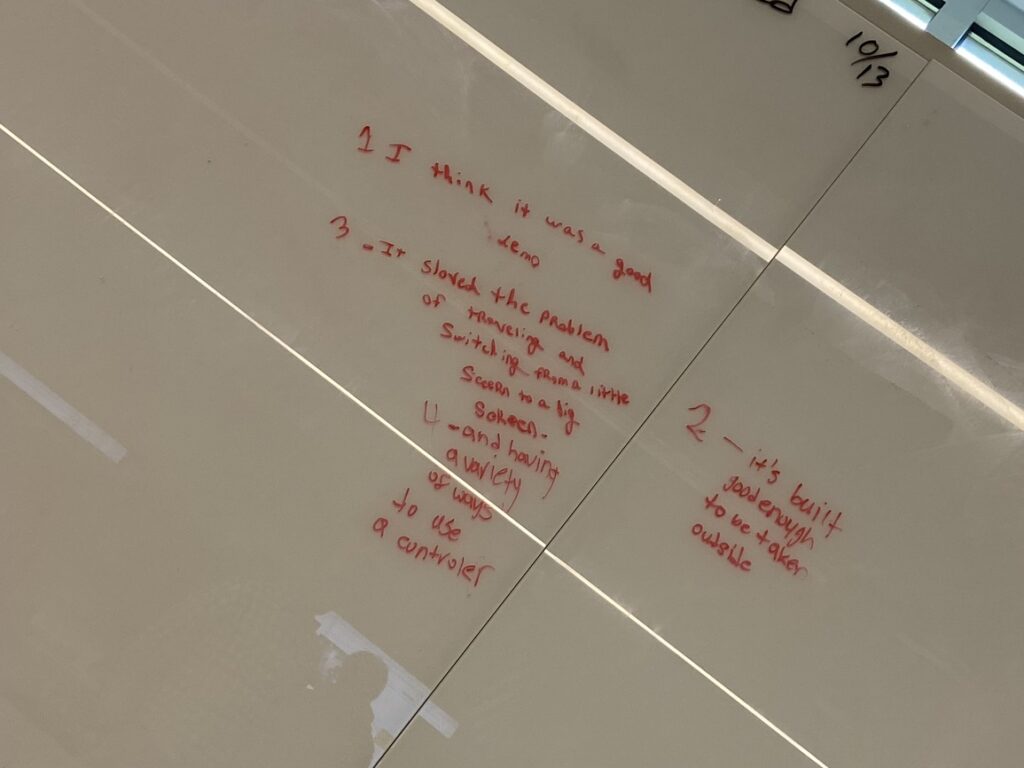 10/13
1 I think it was a good
demo
3 - It sloved the problem
of traveling and
Switching from a little
Screen to a big
Screen-
4 - and having
a variety
of ways
to use
a controler
2 - it's built
good enough
to be taken
outside